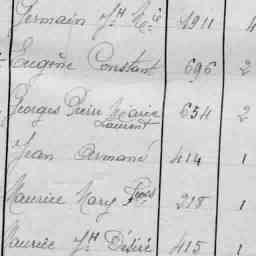 Germain Jh Mie 1911 4
Eugène Constant 696 2
Georges Pierre Marie 654 2
Laurent
Jean Armand 414 1
Maurice Mary 218 1
Maurice Jh Désiré 415 1